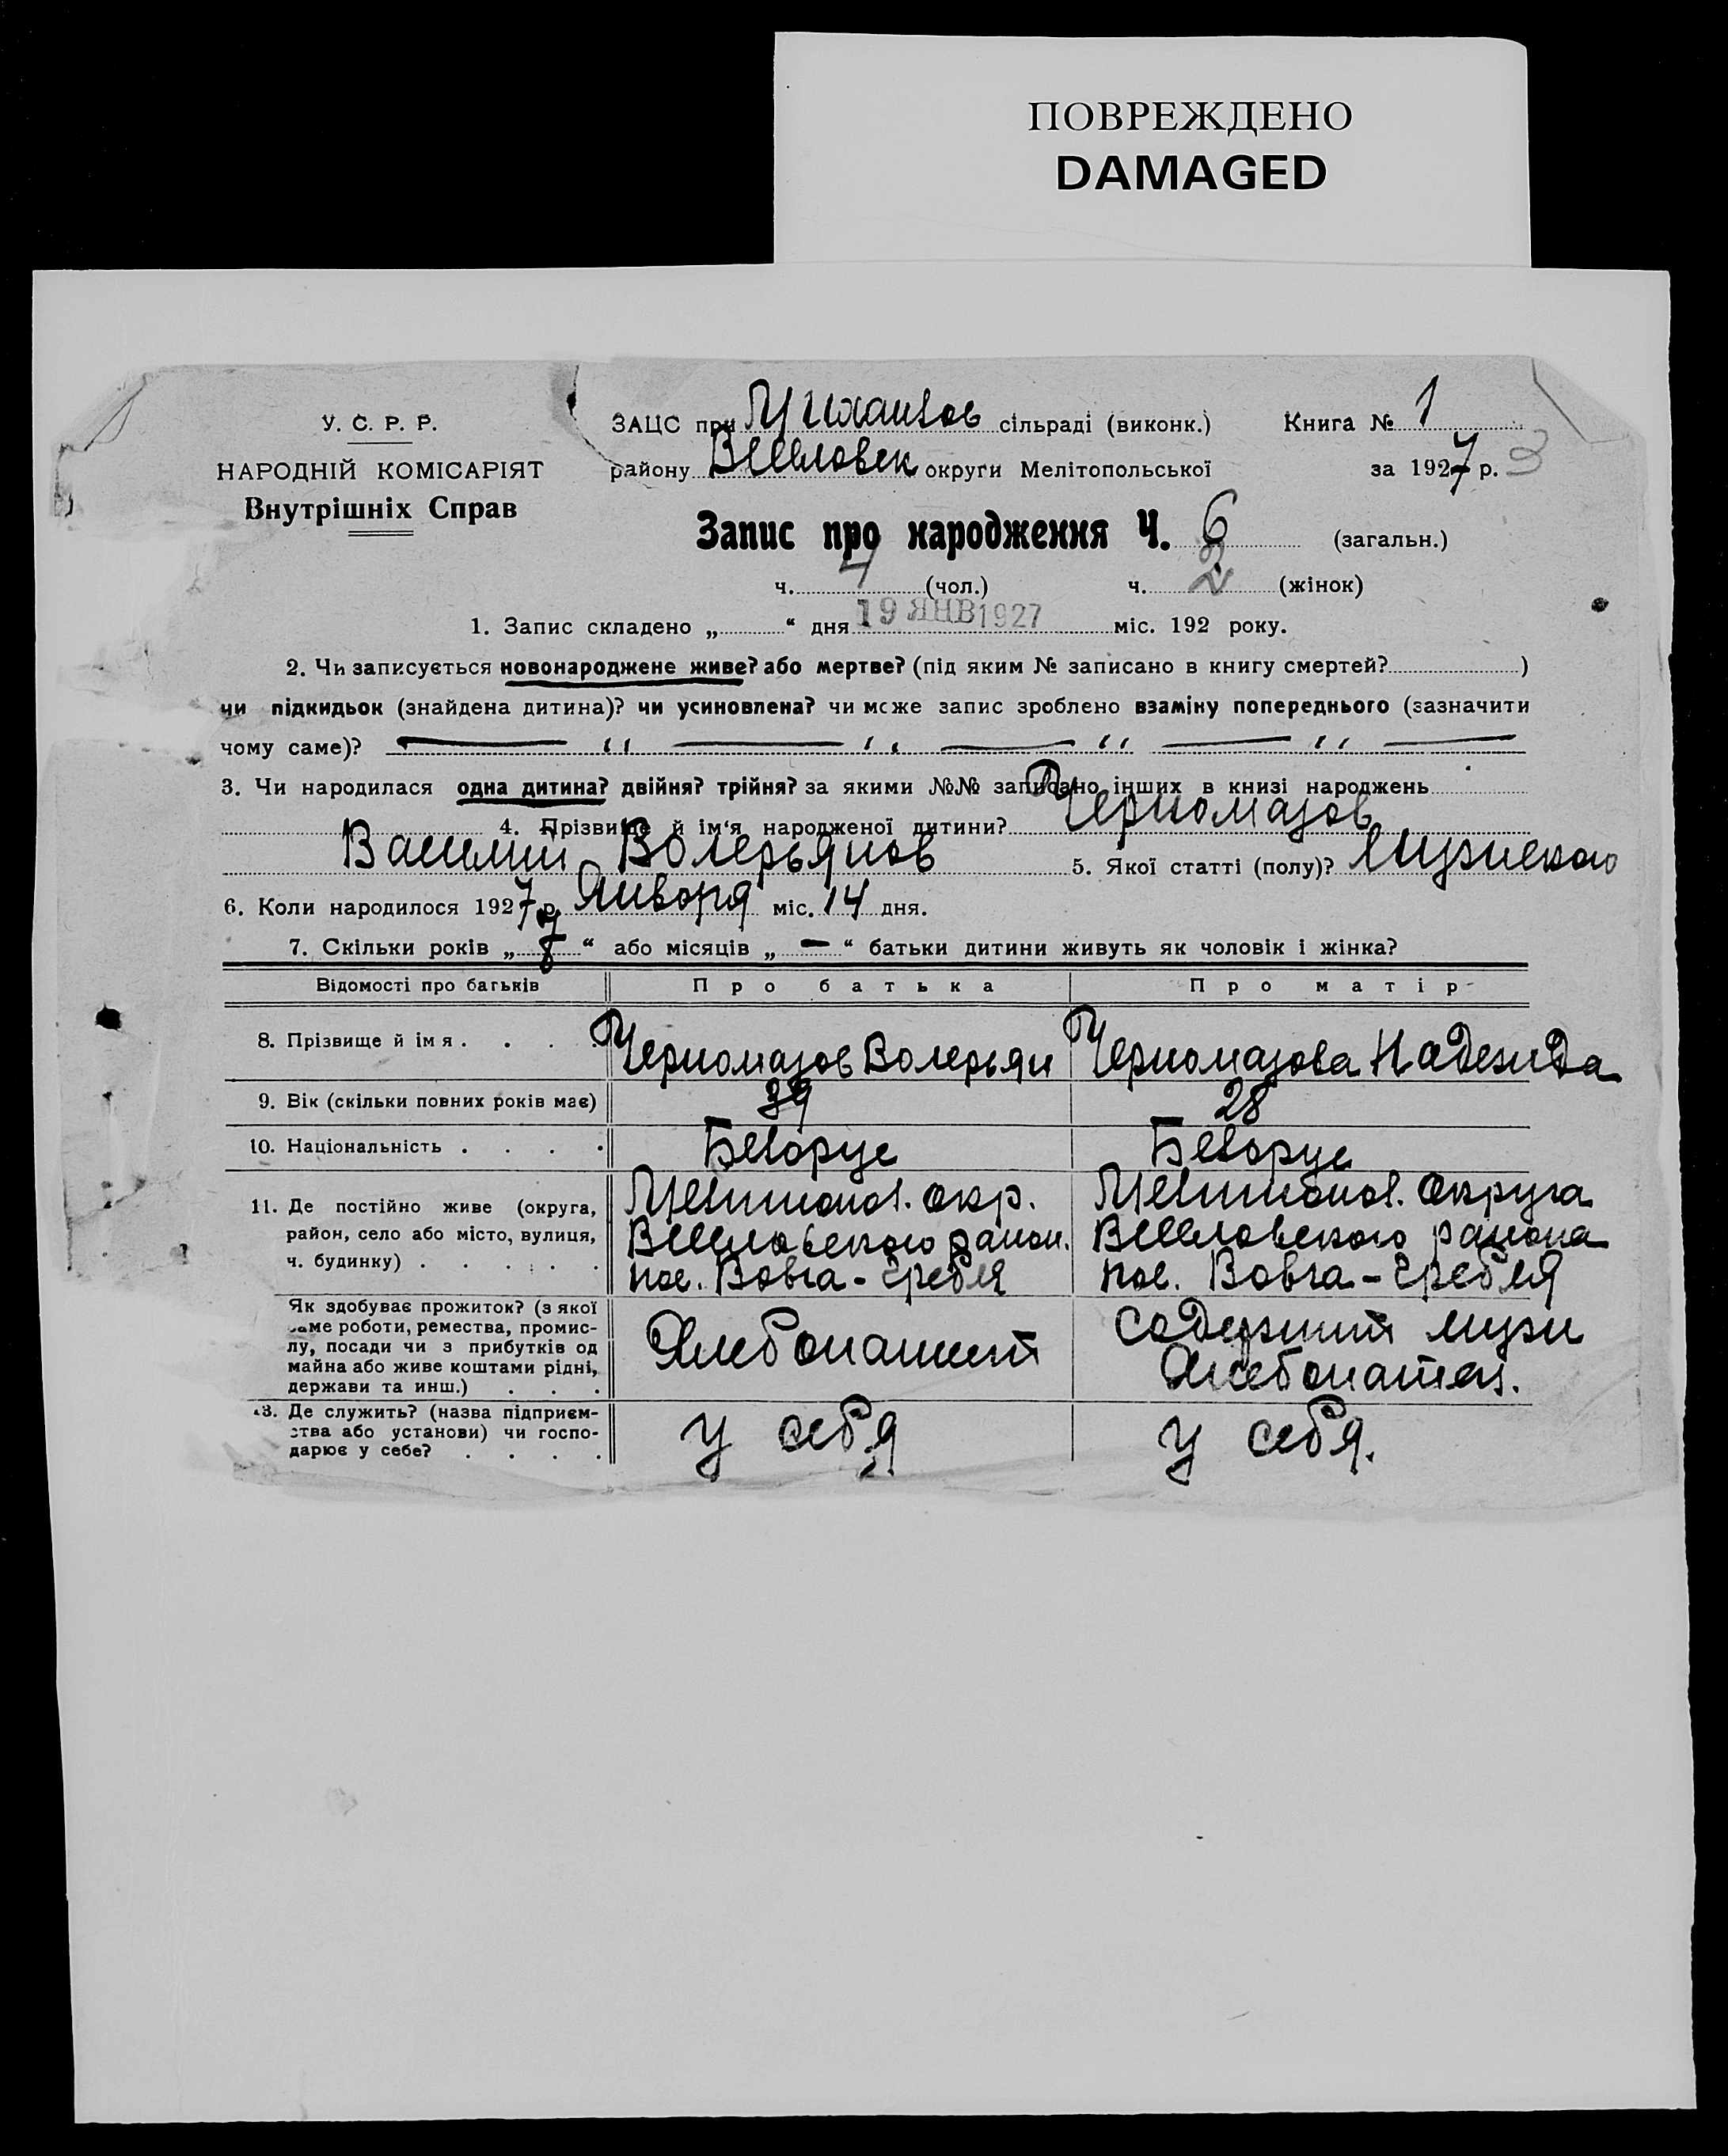 ПОВРЕЖДЕНО
DAMAGED
У. С. Р. Р.
НАРОДНІЙ КОМІСАРІЯТ
Внутрішніх Справ
ЗАЦС при Михайлов сільраді (виконк.) Книга № 1
району Веселовск округи Мелітопольської за 1927 р. 3
Запис про народження Ч. 6 (загальн.)
ч. 4 (чол.) ч. 2 (жінок)
1. Запис складено „ “ дня 19 ЯНВ 1927 міс. 192 року.
2. Чи записується новонароджене живе? або мертве? (під яким № записано в книгу смертей? )
чи підкидьок (знайдена дитина)? чи усиновлена? чи може запис зроблено взаміну попереднього (зазначити
чому саме)? — " — " — " — " —
3. Чи народилася одна дитина? двійня? трійня? за якими №№ записано інших в книзі народжень
4. Прізвище й ім‘я народженої дитини? Черномазов
Василий Волерьянов 5. Якої статті (полу)? Мужского
6. Коли народилося 1927 р. Января міс. 14 дня.
7. Скільки років „ “ або місяців „ — “ батьки дитини живуть як чоловік і жінка?
Відомості про батьків Про батька Про матір
8. Прізвище й імя . . . . Черномазов Волерьян Черномазова Надежда
9. Вік (скільки повних років має) 39 28
10. Національність . . . . Белорус Белорус
11. Де постійно живе (округа, Мелитопол. окр. Мелитопол. округа
район, село або місто, вулиця, Веселовского район. Веселовского района
ч. будинку) . . . . . . пос. Вовча-Гребля пос. Вовча-Гребля
Як здобуває прожиток? (з якої
саме роботи, ремества, промис-
лу, посади чи з прибутків од
майна або живе коштами рідні,
держави та инш.) . . .
Хлебопашест
содержит муж
Хлебопашец.
13. Де служить? (назва підприєм-
ства або установи) чи госпо-
дарює у себе? . . . .
у себя
у себя.